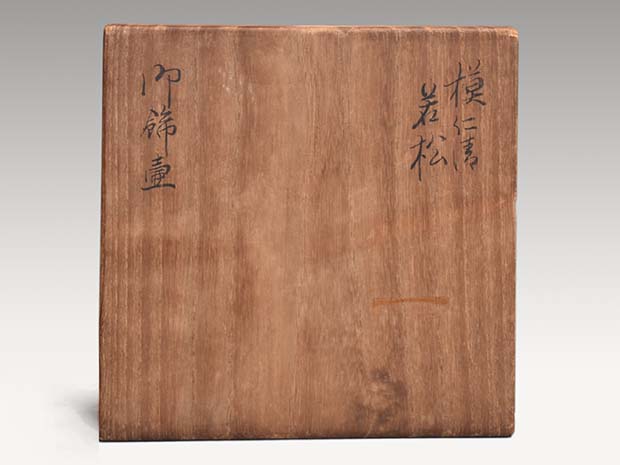 模仁清
若松
御飾壷